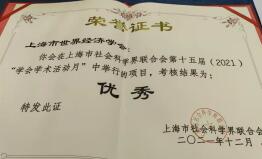 荣誉证书
上海市世界经济学会:
你会在上海市社会科学界联合会第十五届(2021)
“学会学术活动月”中举行的项目,考核结果为:
优秀
特发此证
上海市社会科学界联合会
二〇二一年十二月